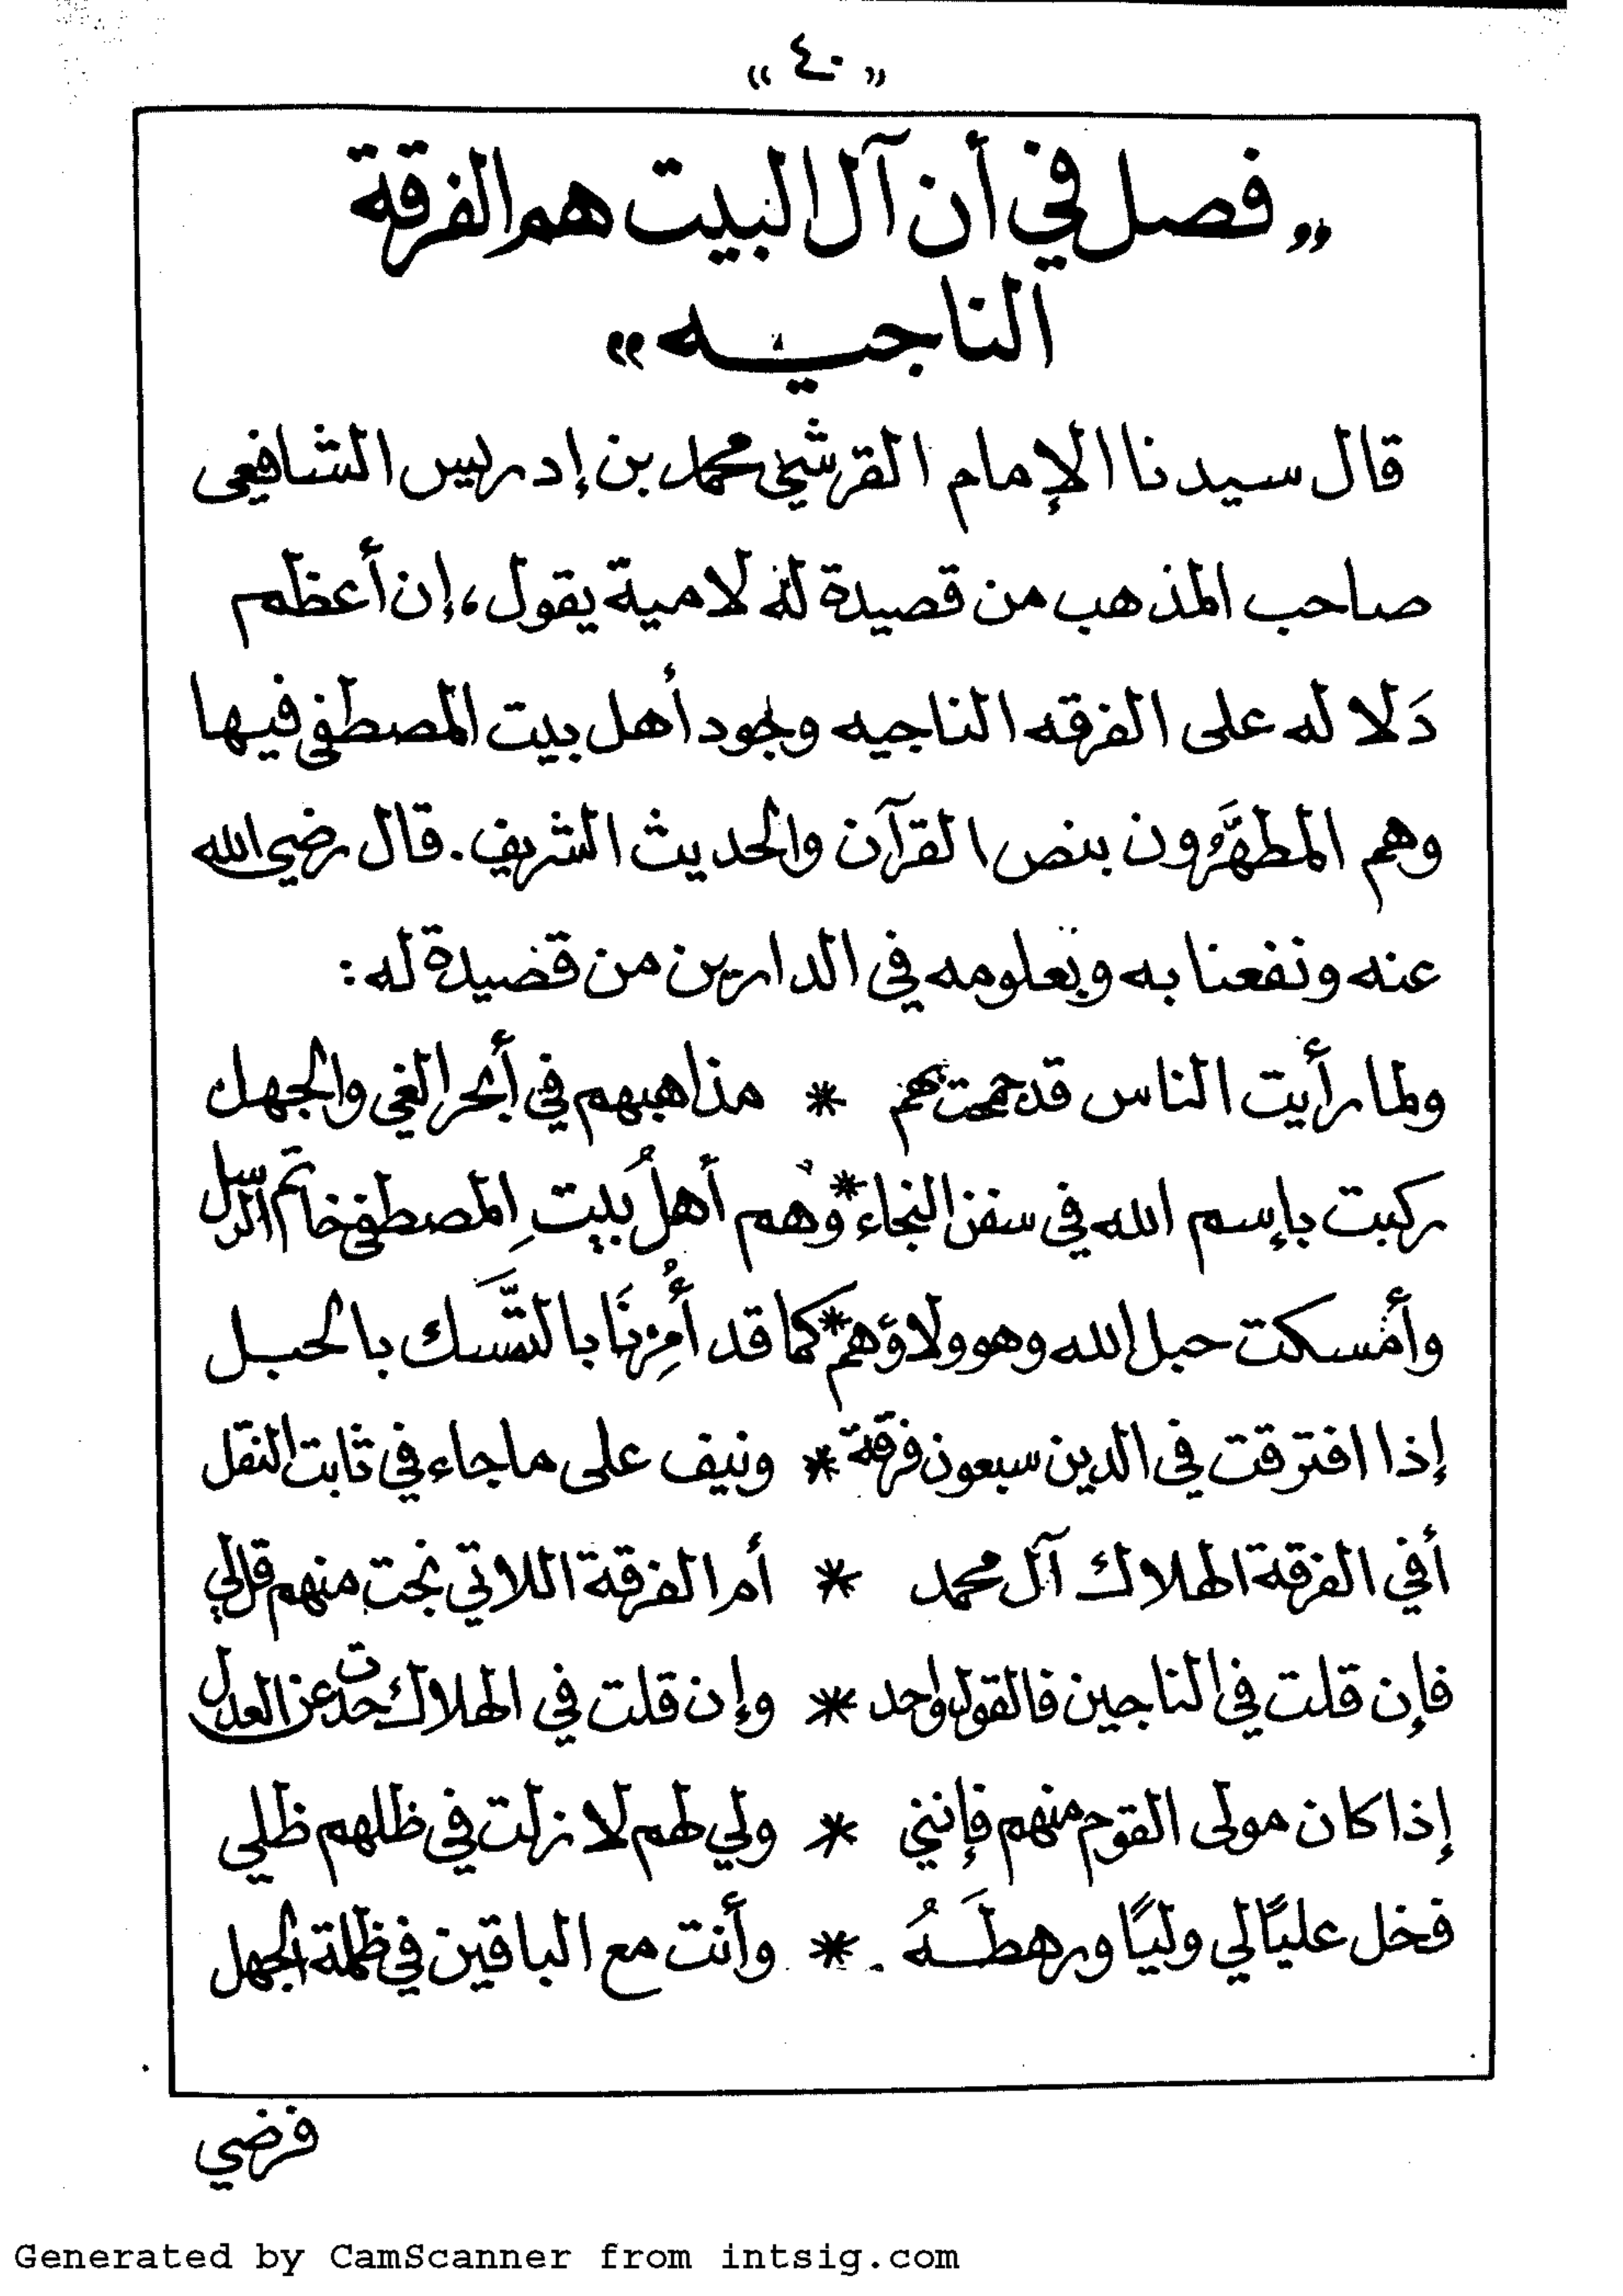 « ٤٠ »
« فصل في أن آل البيت هم الفرقة
الناجيه »
قال سيدنا الإمام القرشي محمد بن إدريس الشافعي
صاحب المذهب من قصيدة له لامية يقول، إن أعظم
دَلاله على الفرقه الناجيه وجود أهل بيت المصطفى فيها
وهم المطهَّرون بنص القرآن والحديث الشريف. قال رضي الله
عنه ونفعنا به وبعلومه في الدارين من قصيدة له :
ولما رأيت الناس قد جمحت بهم * مذاهبهم في أبحر الغي والجهل
ركبت بإسم الله في سفن النجاء * وهم أهلُ بيتِ المصطفى خاتم الرسل
وأمسكت حبل الله وهو ولاؤهم * كما قد أُمِرنَا بالتمَسّك بالحبل
إذا افترقت في الدين سبعون فرقة * ونيف على ما جاء في ثابت النقل
أفي الفرقة الهلاك آل محمد * أم الفرقة اللاتي نجت منهم قل لي
فإن قلت في الناجين فالقول واحد * وإن قلت في الهلاك حدت عن العدل
إذا كان مولى القوم منهم فإنني * ولي لهم لا زلت في ظلهم ظلي
فخل عليًا لي وليًا ورهطَهُ . * وأنت مع الباقين في ظلمة الجهل
فرضي
Generated by CamScanner from intsig.com